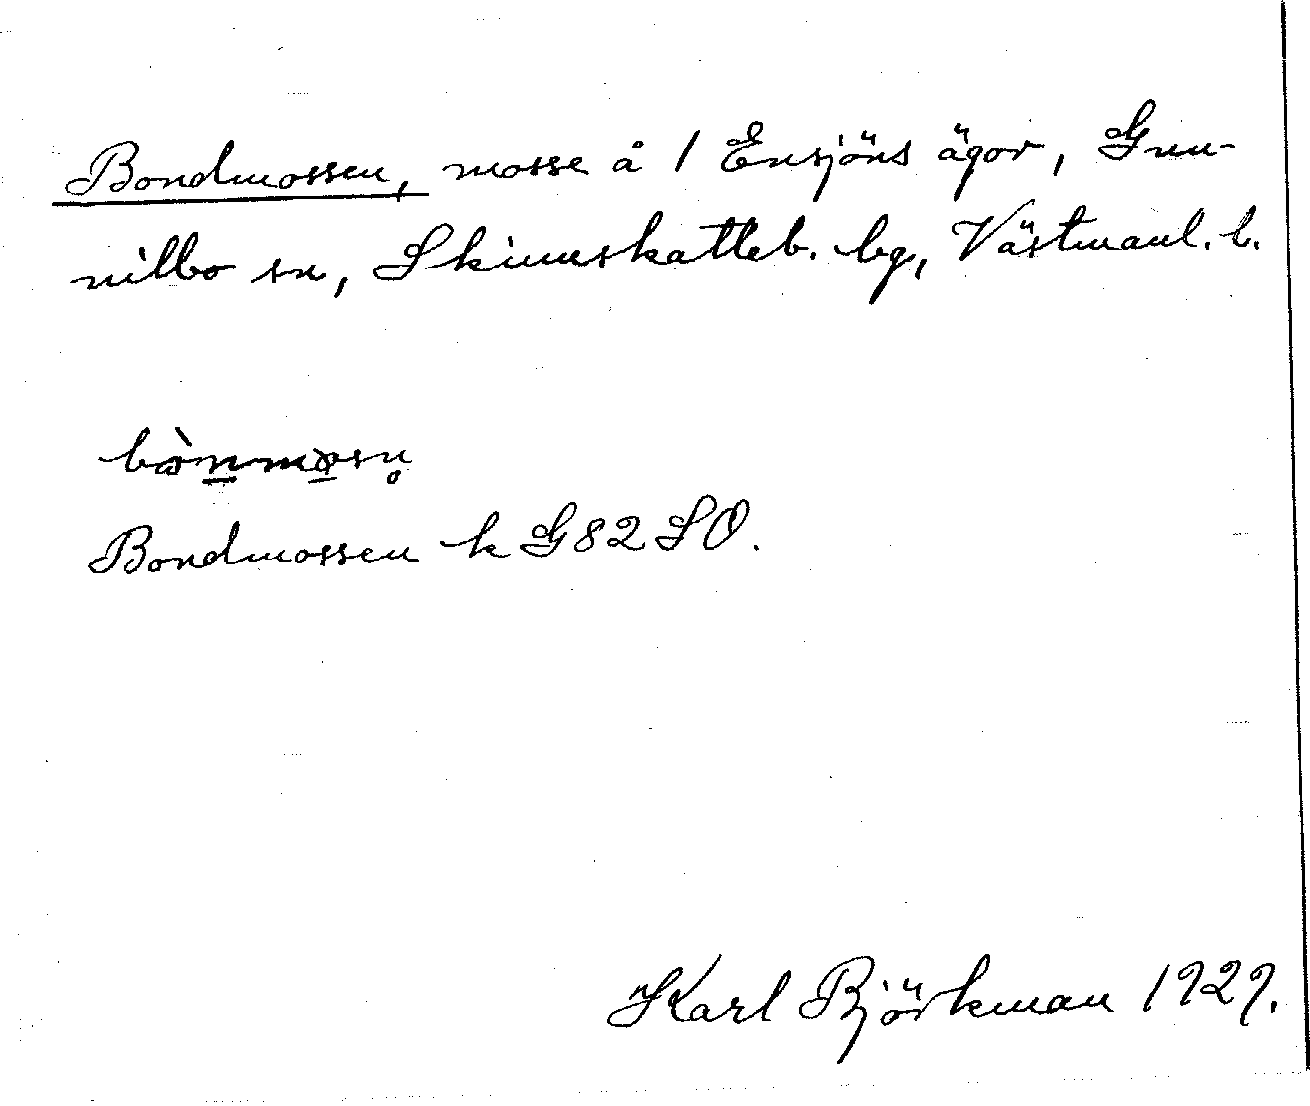 Bondmossen, mosse å / Ensjöns ägor, Gun-
nilbo sn, Skinnskatteb. bg, Västmanl. l.
Bondmossen k G82SO.
Karl Björkman 1929.